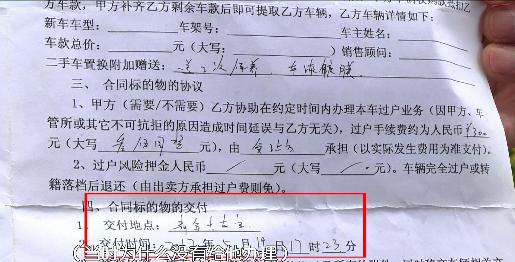 方车款，甲方补齐乙方剩余车款后即可提取乙方车辆，乙方车辆详情如下：
新车车型： 车架号： 车主姓名：
车款总价： 元（大写： ）销售顾问：
二手车置换附加赠送：送2次保养，车漆镀膜
三、合同标的物的协议
1、甲方（需要/不需要）乙方协助在约定时间内办理本车过户业务（因甲方、车
管所或其它不可抗拒的原因造成时间延误与乙方无关），过户手续费约为人民币¥300
元（大写 叁佰圆整 元），由 承担（以实际发生费用为准支付）。
2、过户风险押金人民币 / 元（大写 / 元）。车辆完全过户或转
籍落档后退还（由出卖方承担过户费则免）。
四、合同标的物的交付
1、交付地点：
2、交付时间： 年 月19日17时23分
（当时为什么没有给他办理）